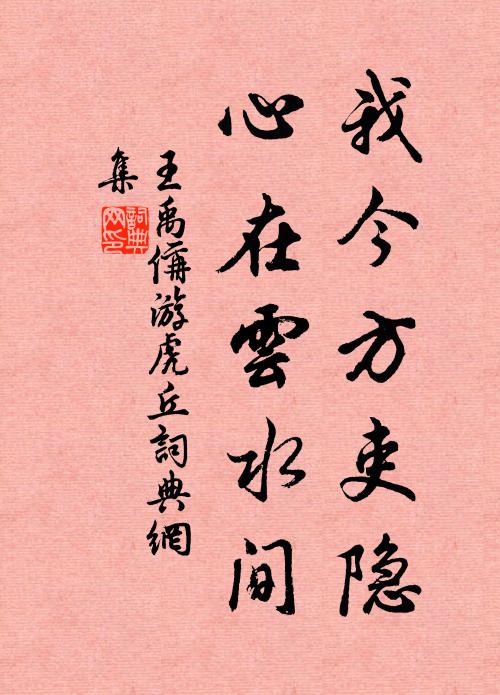 我今方吏隐
心在雲水间
王禹偁游虎丘詞典網
集
詞典
网印